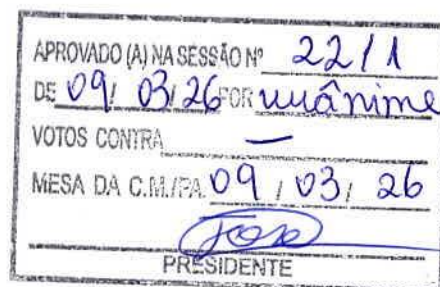 APROVADO (A) NA SESSÃO Nº 22/1
DE 09/ 03/ 26 FOR unânime
VOTOS CONTRA —
MESA DA C.M./PA. 09 / 03 / 26
PRESIDENTE